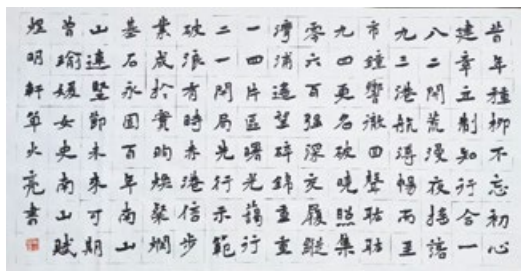 昔年種柳不忘初心
建章立制知行合一
八二開荒漫夜
九三港航暢而至
市鐘響徹四聲
九四更名破曉照集
零六百強深交履蹤
灣浦遙望碎錦重重
一四片區曙光行
二一開局先行示範
破浪有時赤港信步
業成於實
基石永固百年南山
山連節未來可期
曾瑜媛女史南山賦
煜明軒單火亮書